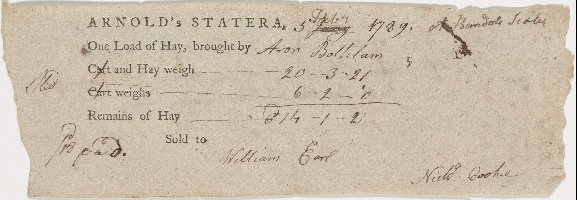 ARNOLD's STATERA, 5 Febry 1789. at Bundols Scales
One Load of Hay, brought by Aron Bollclum
Cart and Hay weigh 20 - 3 - 21
Cart weighs 6 - 2 - 0
Remains of Hay 14 - 1 - 21
Sold to
pd.
William Earl
Nichs Cooke